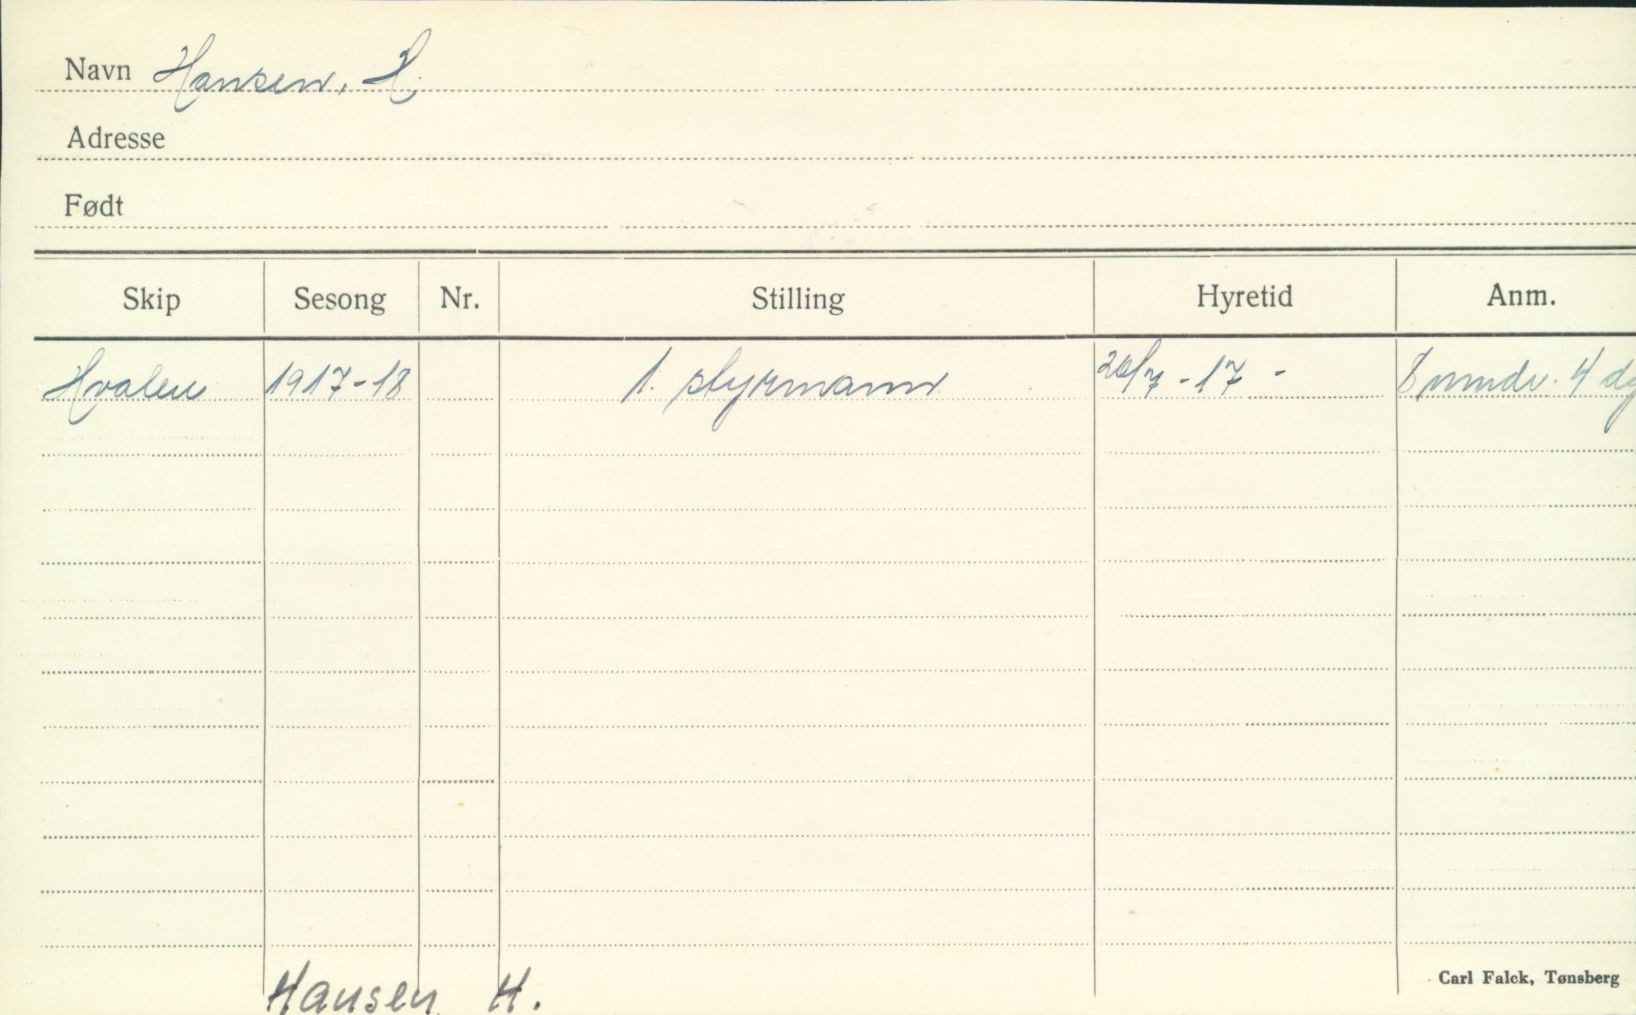 Navn Hansen, H.
Adresse
Født
Skip Sesong Nr. Stilling Hyretid Anm.
Hvalen 1917-18 1. styrmann 26/7 - 17 - 8 mndr. 4 dg
Carl Falck, Tønsberg
Hansen H.